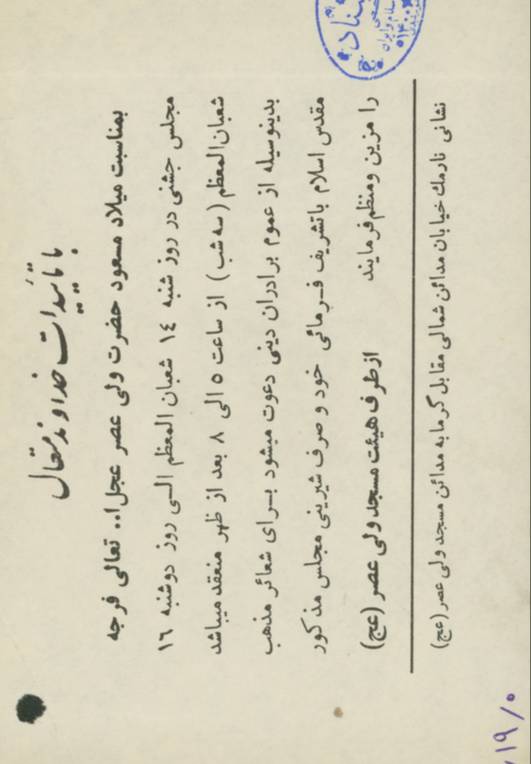 با تأییدات خداوند متعال
بمناسبت میلاد مسعود حضرت ولی عصر عجل ا.. تعالی فرجه
مجلس جشنی در روز شنبه ١٤ شعبان المعظم الـی روز دوشنبه ١٦
شعبان المعظم (سه شب) از ساعت ٥ الی ٨ بعد از ظهر منعقد میباشد
بدینوسیله از عموم برادران دینی دعوت میشود بـرای شعائر مذهب
مقدس اسلام با تشریف فـرمائی خود و صرف شیرینی مجلس مذکور
را مزین و منظم فرمایند
از طرف هیئت مسجد ولی عصر (عج)
نشانی نارمك خیابان مدائن شمالی مقابل گرمابه مدائن مسجد ولی عصر (عج)